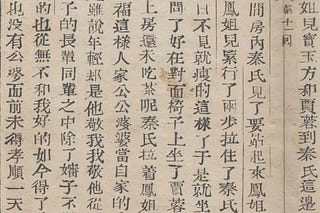 姐兒寶玉方和賈蓉到秦氏這邊
第十一回
間房內秦氏見了要站起來鳳姐
鳳姐兒緊行了兩步拉住了秦氏
日不見就瘦的這樣了于是就坐
問了好在對面椅子上坐了賈蓉
上房還未吃茶呢秦氏拉着鳳姐
福這樣人家公公婆婆當自家的
雖說年輕却是他敬我我敬他從
子的長輩同輩之中除了嬸子不
的也從無不和我好的如今得了
也没有公婆面前未得孝順一天